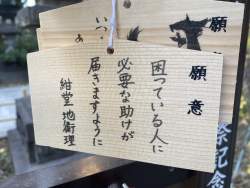 願意
困っている人に
必要な助けが
届きますように
紺堂 地衛理
願意
いつ
祭記念